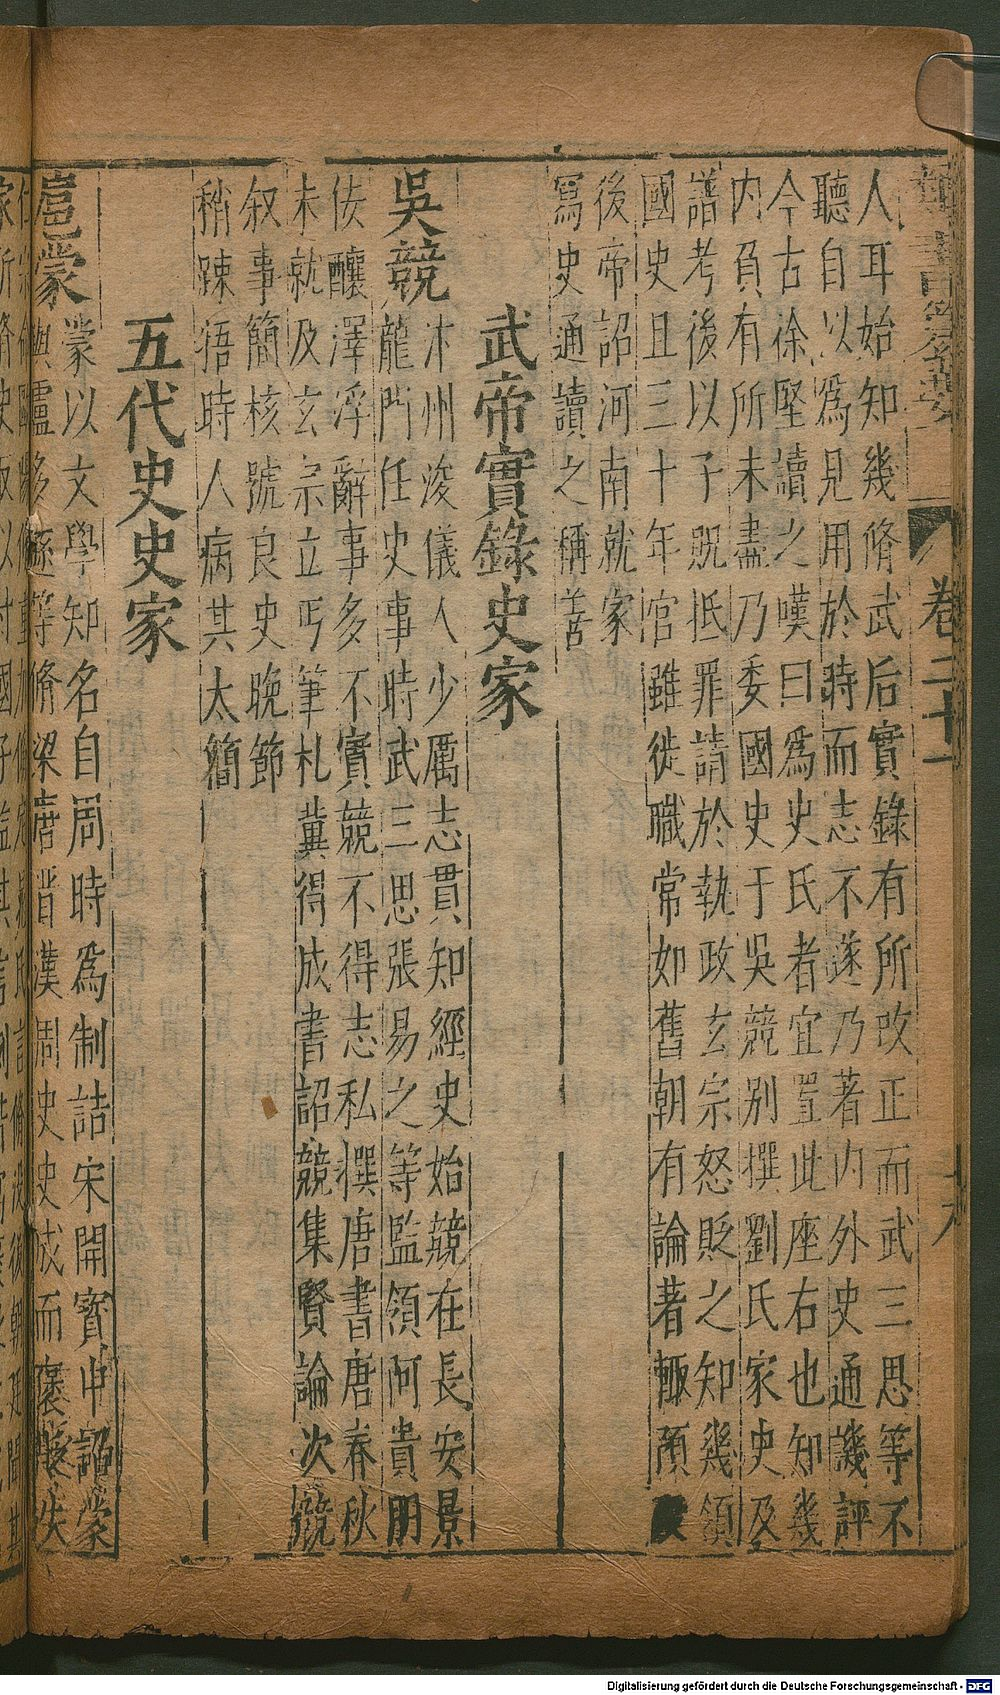 卷二十一
人耳始知幾脩武后實錄有所改正而武三思等不
聽自以爲見用於時而志不遂乃著內外史通譏評
今古徐堅讀之嘆曰爲史氏者宜置此座右也知幾
內負有所未盡乃委國史于吳競別撰劉氏家史及
譜考後以子貺抵罪請於執政玄宗怒貶之知幾領
國史且三十年官雖徙職常如舊朝有論著輙預
後帝詔河南就家
寫史通讀之稱善
武帝實錄史家
吳競
汴州浚儀人少厲志貫知經史始競在長安景
龍門任史事時武三思張易之等監領阿貴朋
佞釀澤浮辭事多不實競不得志私撰唐書唐春秋
未就及玄宗立丐筆札冀得成書詔競集賢論次競
叙事簡核號良史晚節
稍踈牾時人病其太簡
五代史史家
扈蒙
蒙以文學知名自周時爲制詰宋開寳中詔蒙
與盧多遜等脩梁唐晋漢周史史成而褒貶失
Digitalisierung gefördert durch die Deutsche Forschungsgemeinschaft - DFG